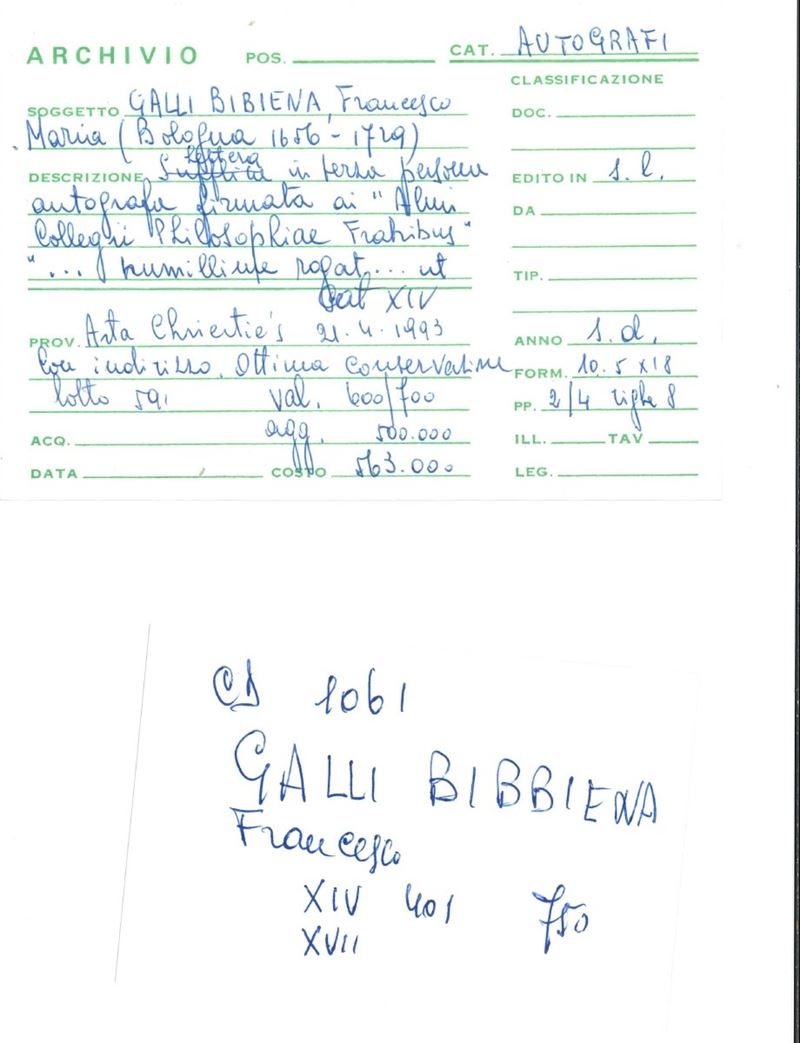 ARCHIVIO POS. CAT. AUTOGRAFI
CLASSIFICAZIONE
SOGGETTO GALLI BIBIENA, Francesco
DOC.
Maria (Bologna 1656-1729)
lettera
DESCRIZIONE Supplica in terza persona
EDITO IN s.l.
autografa firmata ai "Almi
DA
Collegii Philosophiae Fratribus"
"... humillime rogat... ut
TIP.
Cat XIV
PROV. Asta Christie's 21.4.1993
ANNO s.d.
Con indirizzo. Ottima conservazione
FORM. 10.5x18
lotto 591 val. 600/700
PP. 2/4 righe 8
agg. 500.000
ACQ.
ILL. TAV
DATA COSTO 563.000
LEG.
CD 1061
GALLI BIBBIENA
Francesco
XIV 401 750
XVII